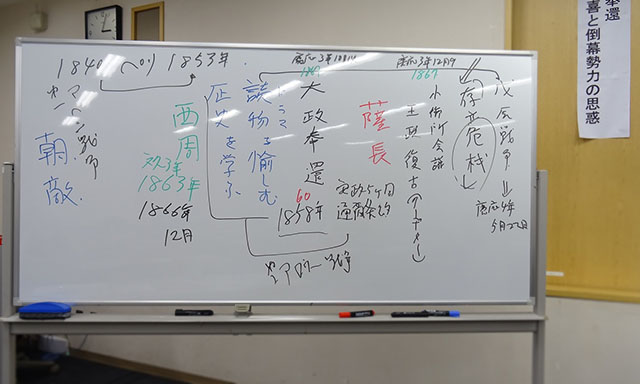 奉還
喜と倒幕勢力の思惑
戊辰戦争
慶応4年
5月22日
存亡危機
小御所会議
王政復古
慶応3年12月9
1867
薩長
大政奉還
慶応3年10月14
1867
安政5ヶ国
通商条約
60
1858年
アロー戦争
ドラマ
談物を愉しむ
正史を学ぶ
西周
文久3年
1863年
1866年
12月
1840
ペリー
1853年
アヘン戦争
朝敵